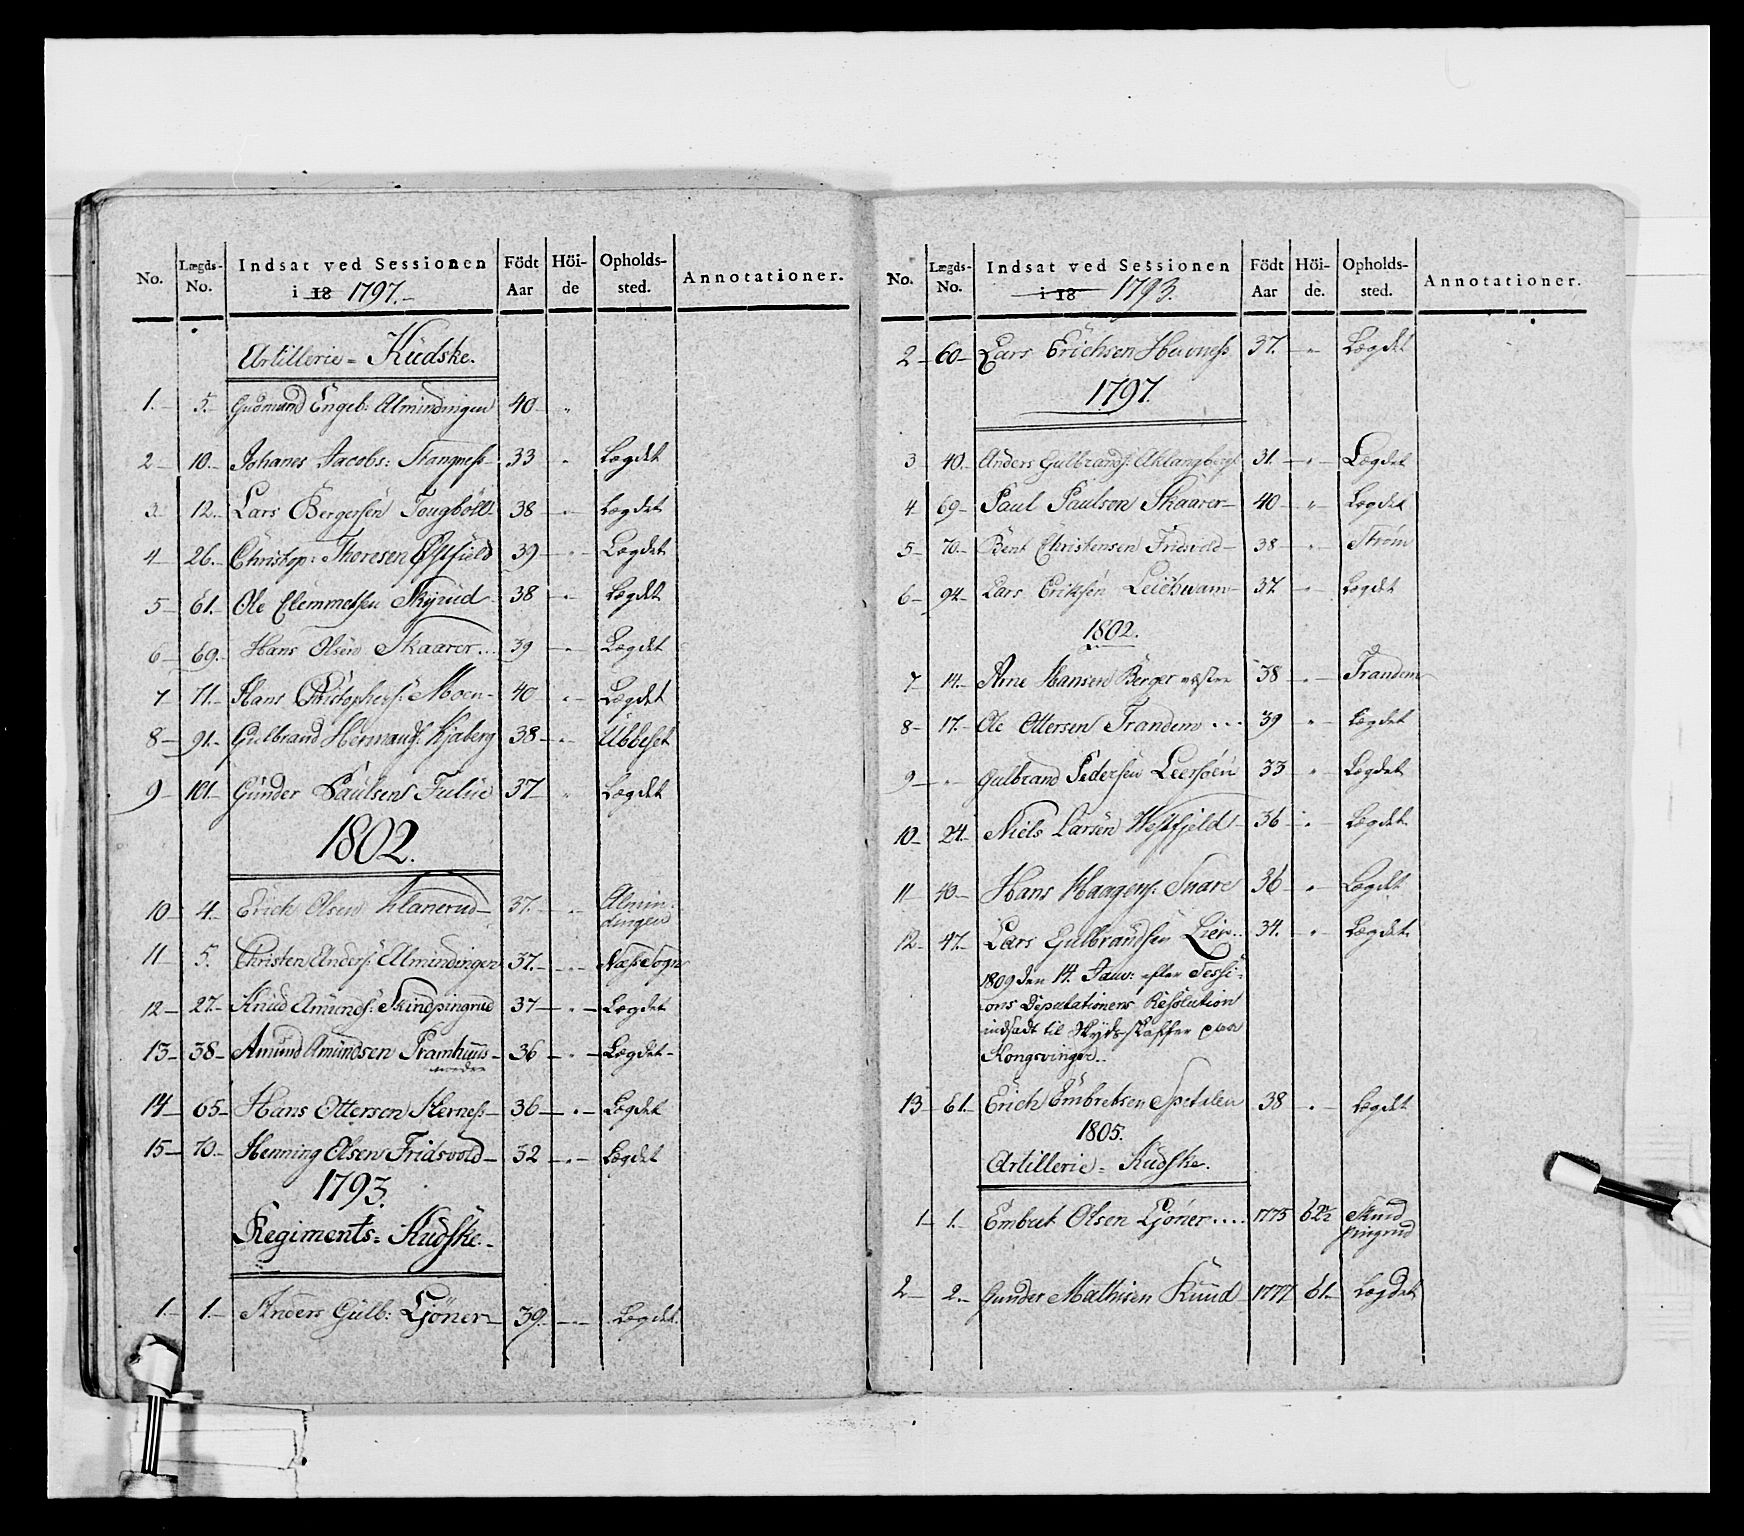 No. Lægds-No. Indsat ved Sessionen i 18 1797.- Födt Aar Höi-de Opholds-sted. Annotationer.
Artillerie = Kudske.
1.- 5.- Gudmund Engeb: Almindingen 40 - "
2 - 10.- Johanes Jacobs: Stangness 33 Lægdet
3 12.- Lars Bergersen Tougböll 38 Lægdet
4 - 26.- Christop: Thoresen Østfield 39 Lægdet
5 - 61.- Ole Clemmetsen Skyrud 38 Lægdet
6 - 69.- Hans Olsen Skaarer 39 Lægdet
7 71.- Hans Christophers: Moen 40 Lægdet
8 - 91.- Gulbrand Hermands: Kjaberg 38 - Ubbeset
9 - 101.- Gunder Paulsen Fulue 37 - Lægdet
1802.
10 - 4.- Erich Olsen Klanerud 37.- Almin-
dingen
11 - 5. Christen Anders: Almindingen 37.- Næss Sogn
12 - 27.- Knud Amunds: Skindpingrud 37 - Lægdet
13 - 38 - Amund Amundsen Pramhuus 36 - Lægdet -
nedre
14 - 65 - Hans Ottersen Herness 36 - Lægdet
15 - 70.- Henning Olsen Fridsvold 32 - Lægdet
1793.
Regiments = Kudske.-
1.- 1.- Anders Gulb: Gjöner 39.- Lægdet
No. Lægds-No. Indsat ved Sessionen i 18 1793. Födt Aar Höi-de. Opholds-sted. Annotationer.
2 - 60 - Lars Erichsen Herness 37. - Lægdet
1797.
3 40.- Anders Gulbrands: Aklangberg 31. - Lægdet
4 - 69 - Paul Paulson Skaarer 40 - Lægdet
5 - 70.- Bent Christensen Fridsvold 38 - Ström
6 - 94 - Lars Eriksen Leichvam 37. - Lægdet
1802.
7 - 14.- Arne Hansen Berger østre 38 - Trandem
8 - 17.- Ole Ottersen Trandem ... 39 Lægdet
9 - " - Gulbrand Pedersen Leersöen 33 Lægdet
10 - 24.- Niels Larsen Westfjeld 36 - Lægdet
11 - 40 - Hans Haagens: Snare 36 - Lægdet
12 - 47.- Lars Gulbrandsen Lier.. 34. - Lægdet.
1809 den 14. Janv: efter Sessi-
ons Deputationens Resolution
indsadt til Skyds-skaffer
Kongsvinger..
13 - 61.- Erich Embretsen Spetalen 38 - Lægdet
1805.
Artillerie = Kudske.
1 - 1.- Embret Olsen Gjöner.... 1775 62½ Skind
pingrud
2 - 2.- Gunder Mathisen Kuud 1777. 61.- Lægdet